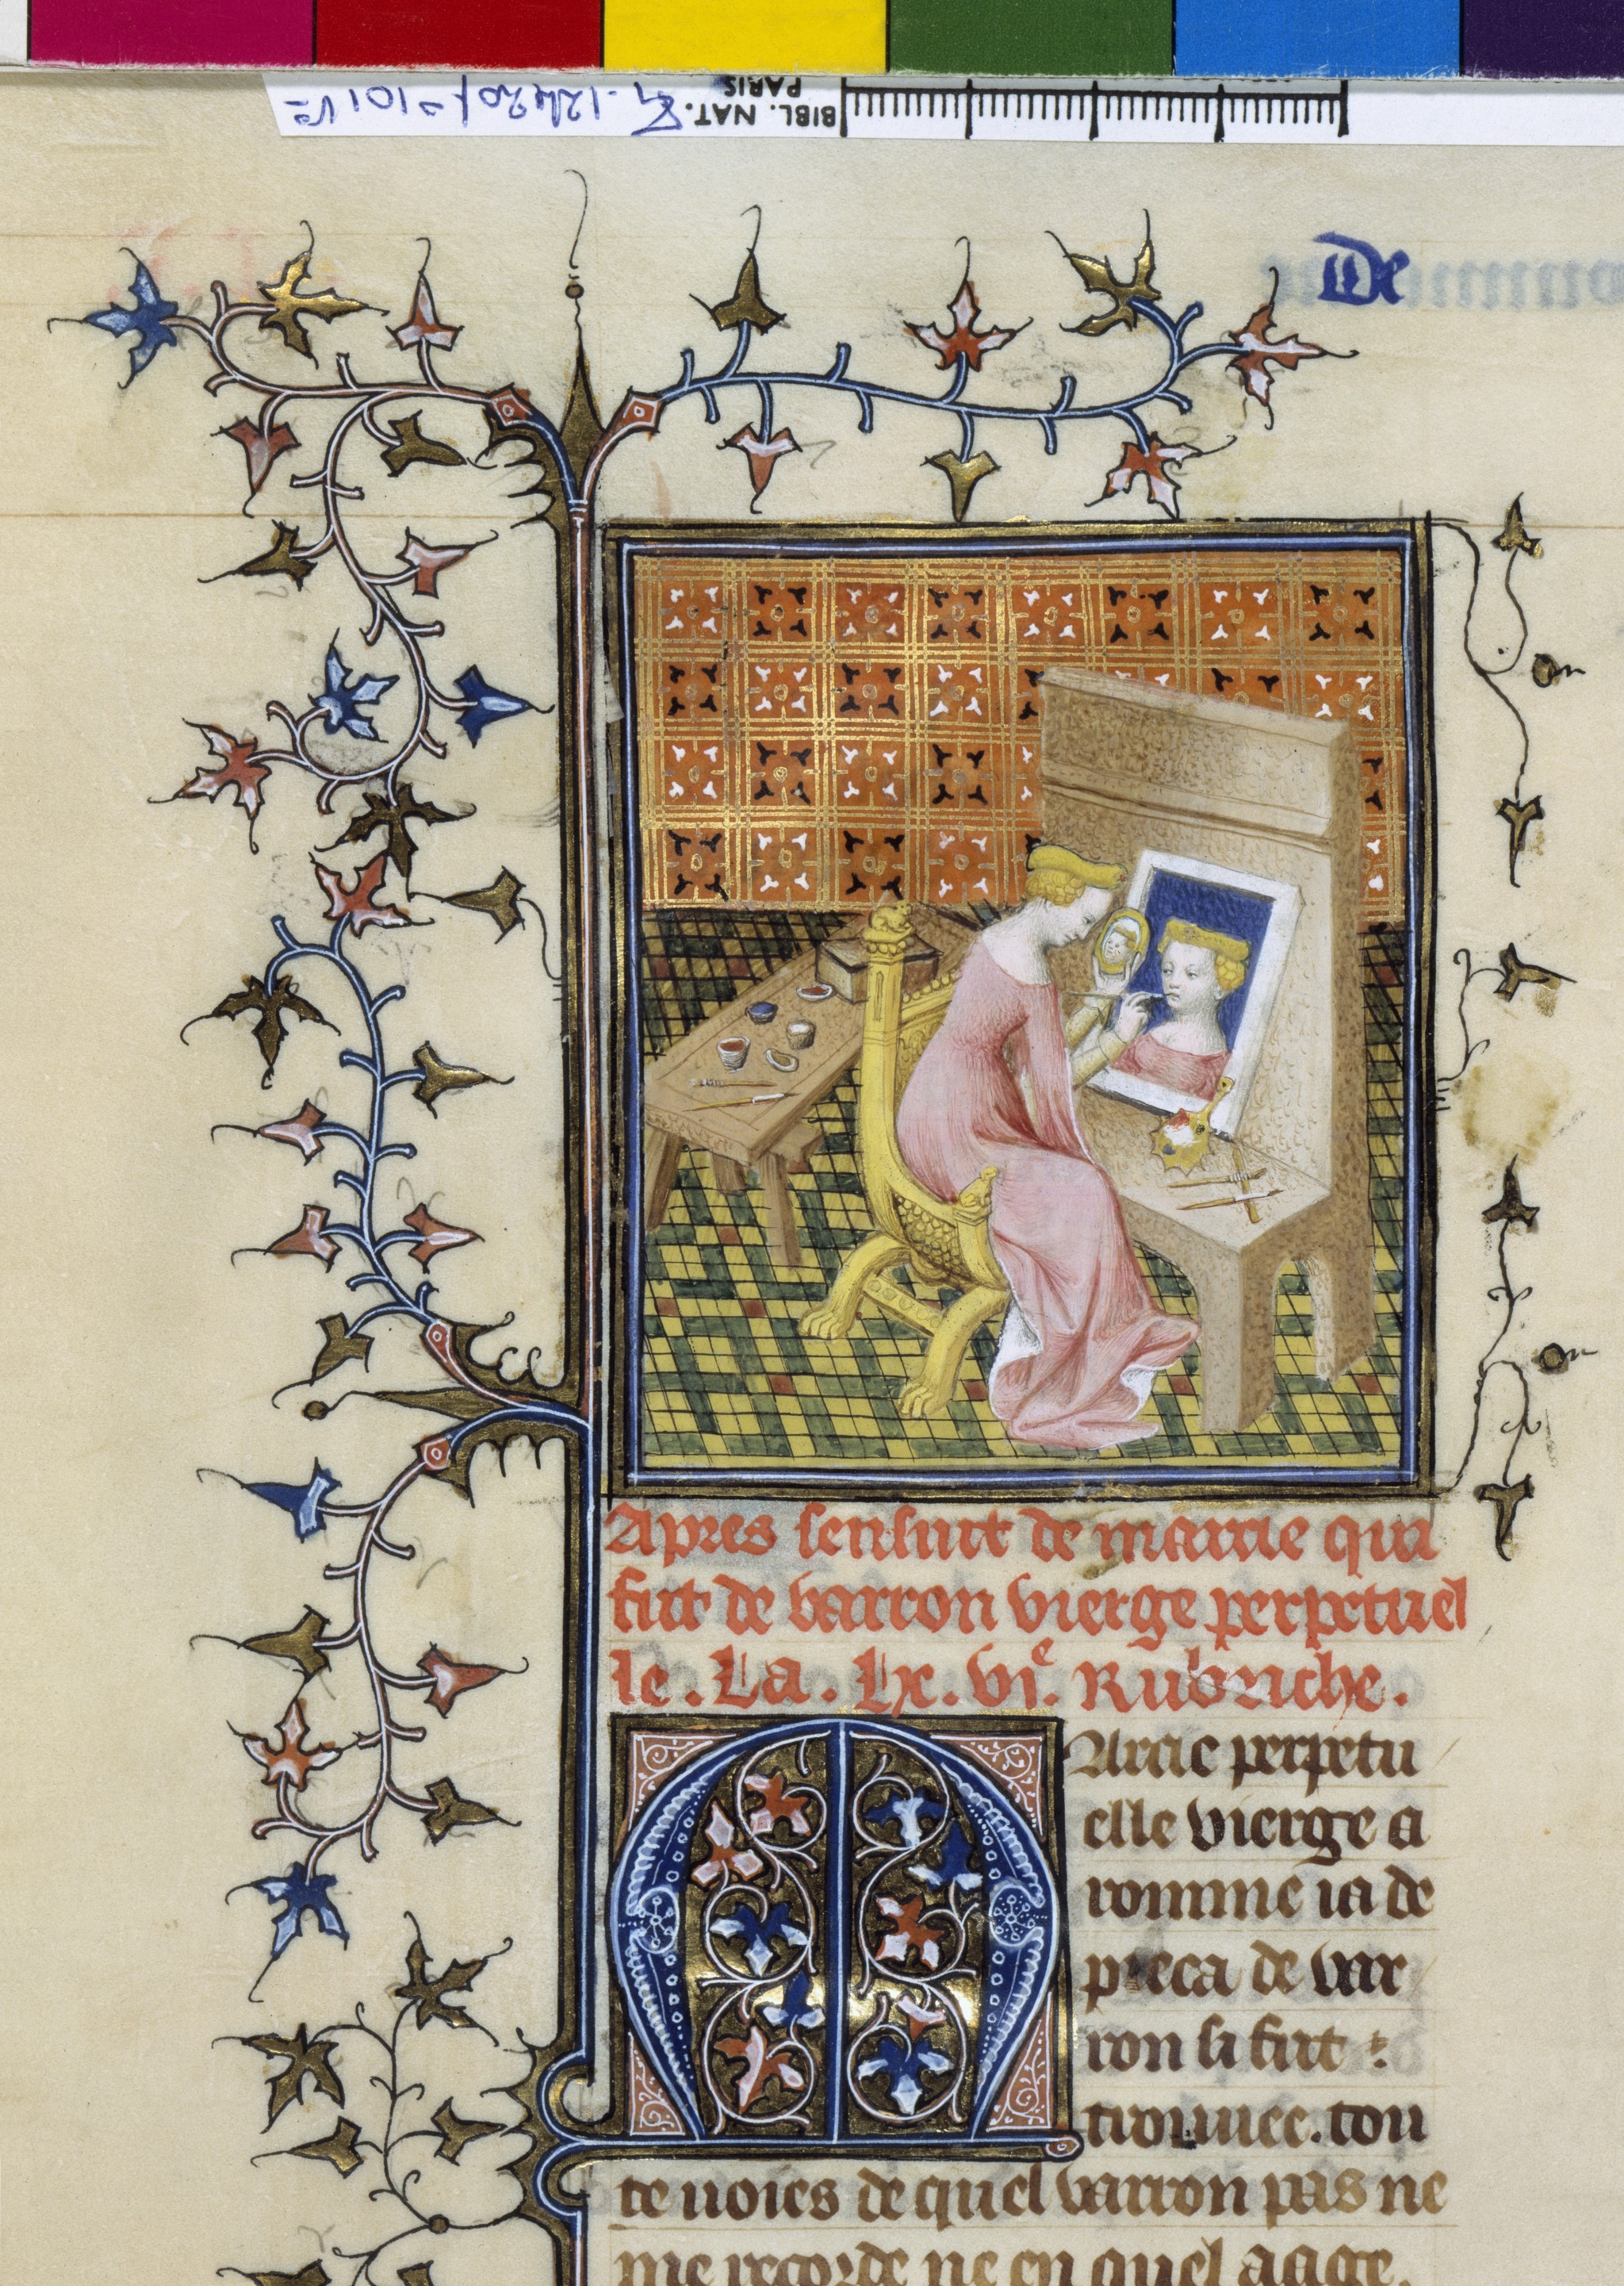 BIBL. NAT.
PARIS
De
Apres sensuit de marcie qui
fut de varron vierge perpetuel
le. La. Lx. vi.e Rubriche.
Marcie perpetu
elle vierge a
romme ia de
pieca de var
ron si fut
trouuee. tou
te uoies de quel varron pas ne
me recorde ne en quel aage.